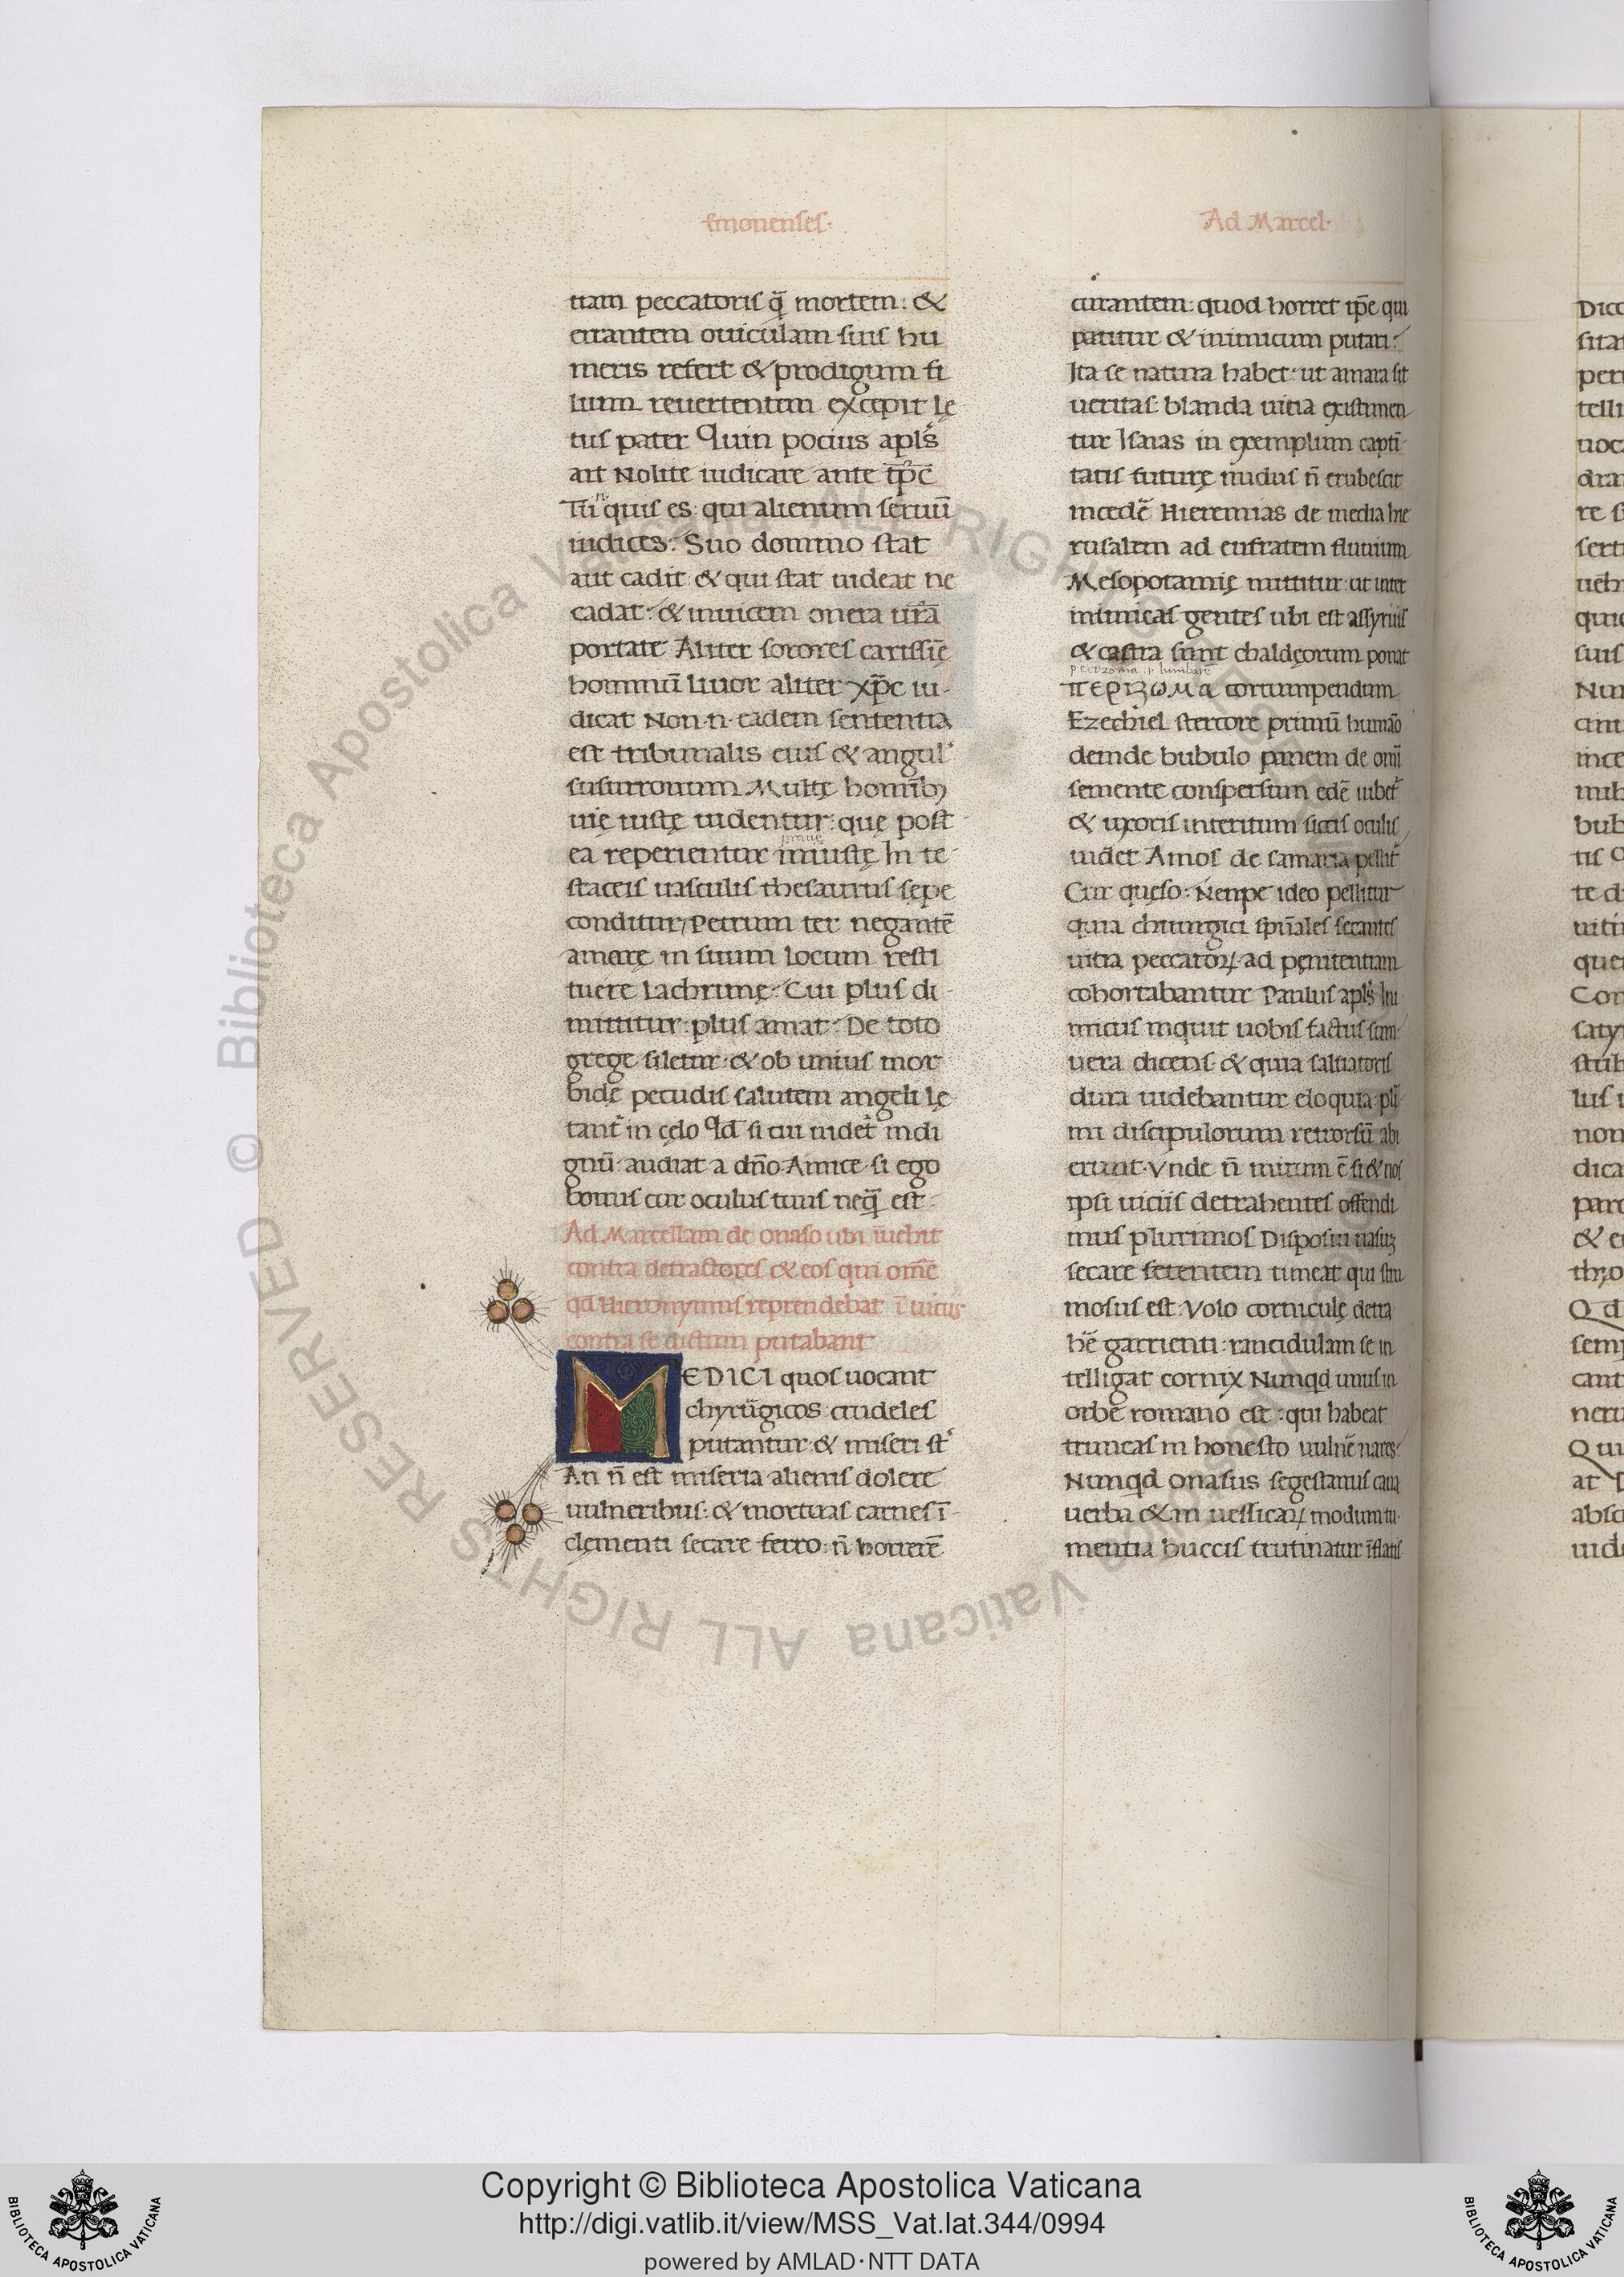 Emonenses·
tiam peccatoris q̃ mortem: &
errantem ouiculam suis hu
meris refert & prodigum fi
lium reuertentem excepit lę
tus pater Quin pocius apl's
ait Nolite iudicare ante tp̃c
Tu quis es: qui alienum seruũ
iudices: Suo domino stat
aut cadit: & qui stat uideat ne
cadat: & inuicem onera ur̃a
portate Aliter sorores carissię
hominũ liuor aliter xp̃c iu-
dicat Non·n·eadem sententia
est tribunalis eius & angul'
susurronum Multę hominib;
uię iustę uidentur: quę post
ea reperientur iniustę In te
praue
staceis uasculis thesaurus sępe
conditur, Petrum ter negantẽ
amarę in suum locum resti
tuere lachrimę· Cui plus di-
mittitur: plus amat· De toto
grege siletur: & ob unius mor
bidę pecudis salutem angeli lę
tant' in cęlo Qd' si cui uidet' indi
gnũ· audiat a dño· Amice· si ego
bonus cur oculus tuus neq̃ est·
Ad Marcellam de onaso ubi inuehit
contra detractores & eos qui omẽ
qd Hieronymus reprendebat ĩ uiciis
contra se dictum putabant
MEDICI quos uocant
chyrurgicos: crudeles
putantur: & miseri st'
An ñ est miseria alienis dolere
uulneribus: & mortuas carnes ĩ-
clementi secare ferro: ñ horrere
Ad Marcel·
curantem: quod horret ip̃e qui
patitur & inimicum putari:
Ita se natura habet: ut amara sit
ueritas: blanda uitia existimen
tur Isaias in exemplum capti-
tatis futurę nudus ñ erubescit
incedẽ Hieremias de media hie
rusalem ad eufratem fluuium
Mesopotamię mittitur: ut inter
inimicas gentes ubi est assyrius
& castra sunt chaldęorum ponat
perizoma ·i· lumbare
περιζωμα corrumpendum
Ezechiel stercore primũ humão
deinde bubulo panem de omi
semente conspersum edẽ iubet'
& uxoris interitum siccis oculis
uidet Amos de samaria pellit'
Cur quęso: Nempe ideo pellitur
quia chirurgici spũales secantes
uitia peccatoꝝ ad pęnitentiam
cohortabantur Paulus apl's Ini
micus inquit uobis factus sum
uera dicens· & quia saluatoris
dura uidebantur eloquia· pl'i
mi discipulorum retrorsũ abi
erunt· Vnde ñ mirum ẽ si & nos
ipsi uiciis detrahentes offendi
mus plurimos Disposui nasuz
secare fetentem timeat qui stru
mosus est: Volo corniculę detra
hẽ garrienti: rancidulam se in
telligat cornix Nunqd unus in
orbe romano est: qui habeat
truncas in honesto uulnẽ nares·
Nunqd onasus segestanus caua
uerba & in uessicaꝝ modum tu-
mentia buccis trutinatur ĩflatis
Copyright © Biblioteca Apostolica Vaticana
http://digi.vatlib.it/view/MSS_Vat.lat.344/0994
powered by AMLAD·NTT DATA
BIBLIOTECA APOSTOLICA VATICANA
BIBLIOTECA APOSTOLICA VATICANA
© Biblioteca Apostolica Vaticana ALL RIGHTS RESERVED